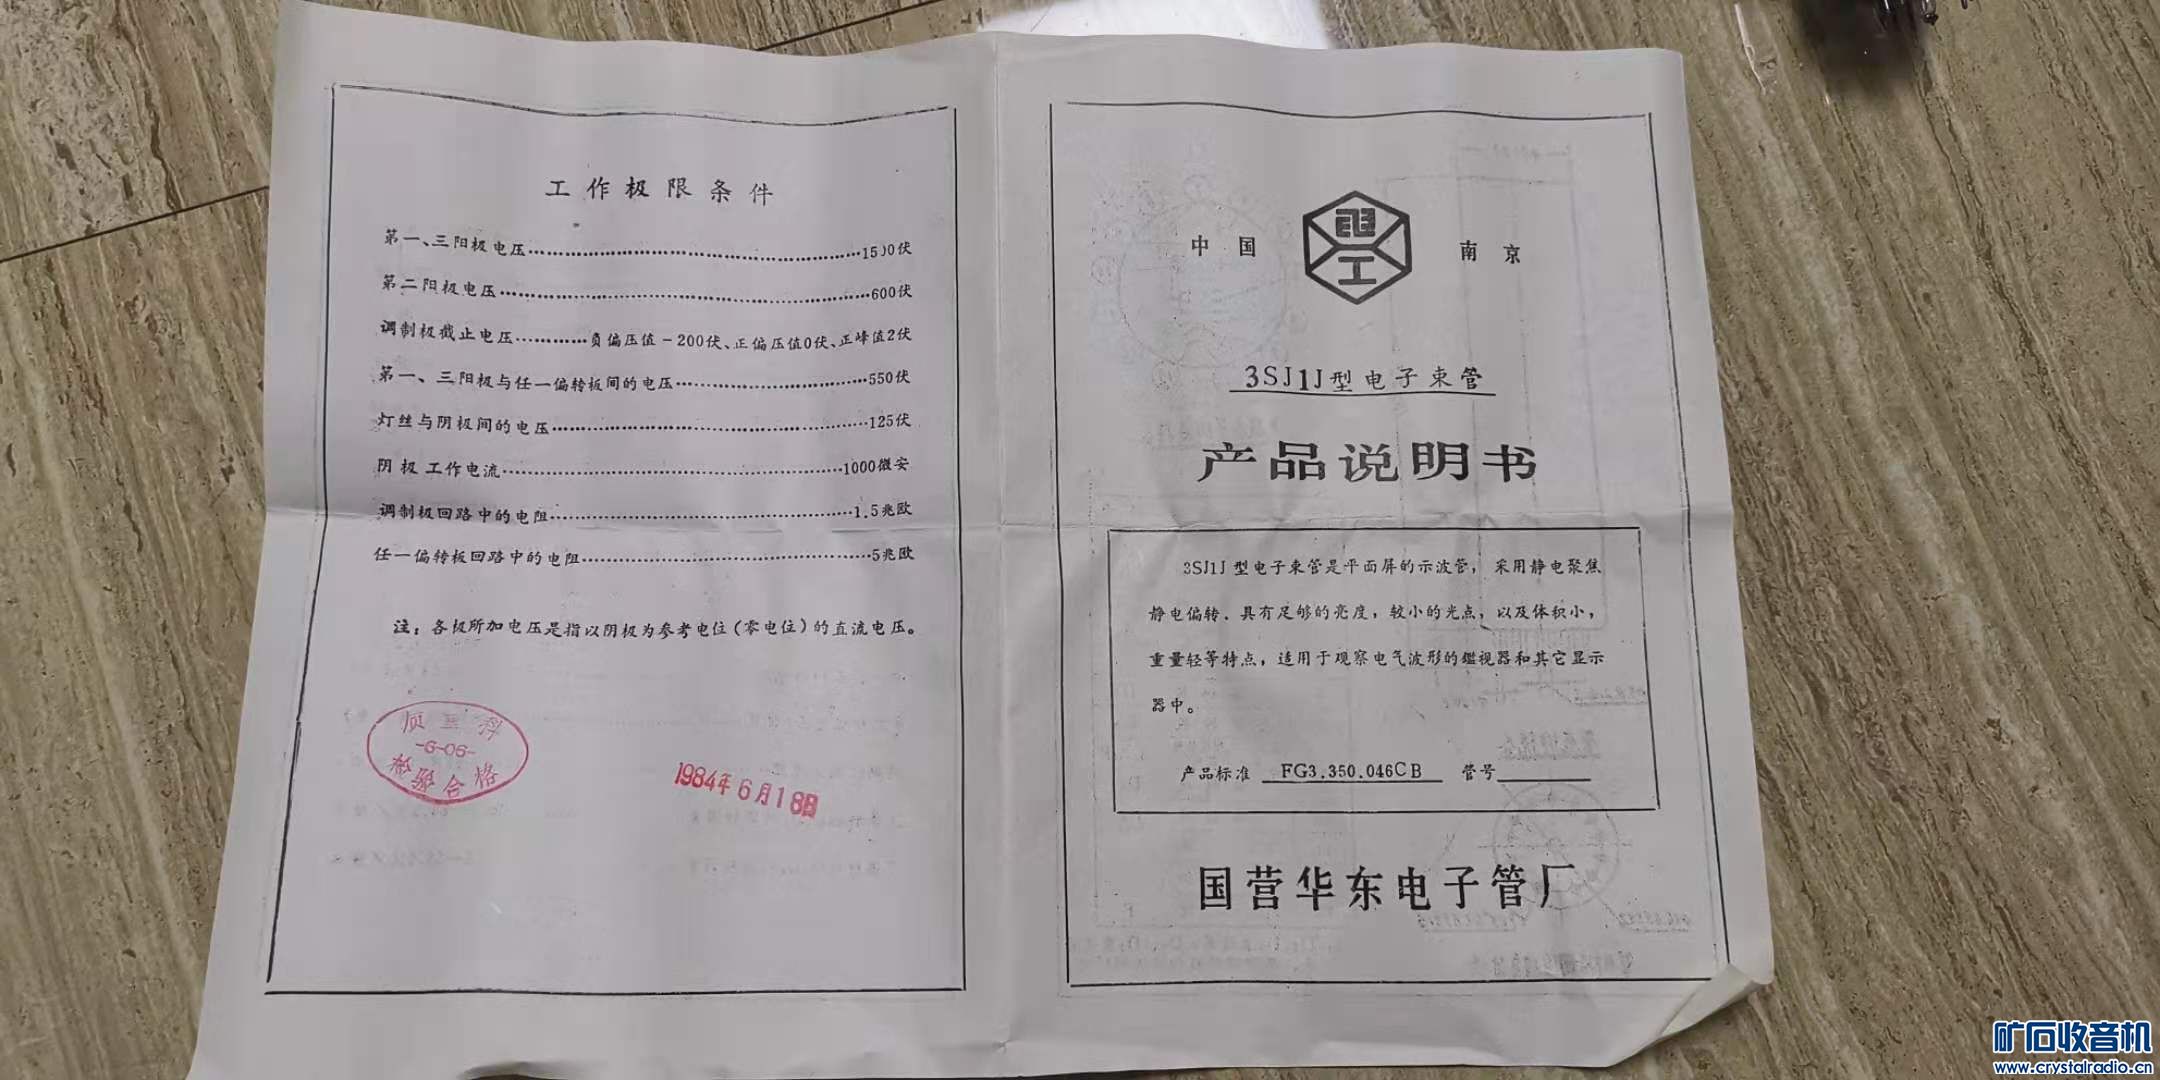 工作极限条件
第一、三阳极电压……15)0伏
第二阳极电压……600伏
调制极截止电压……负偏压值-200伏、正偏压值0伏、正峰值2伏
第一、三阳极与任一偏转板间的电压……550伏
灯丝与阴极间的电压……125伏
阴极工作电流……1000微安
调制极回路中的电阻……1.5兆欧
任一偏转板回路中的电阻……5兆欧
注：各极所加电压是指以阴极为参考电位(零电位)的直流电压。
质量科
-6-06-
检验合格
1984年6月18日
中国 南京
3SJ1J型电子束管
产品说明书
3SJ1J型电子束管是平面屏的示波管，采用静电聚焦
静电偏转．具有足够的亮度，较小的光点，以及体积小，
重量轻等特点，适用于观察电气波形的监视器和其它显示
器中。
产品标准 FG3.350.046CB 管号
国营华东电子管厂
矿石收音机
www.crystalradio.cn